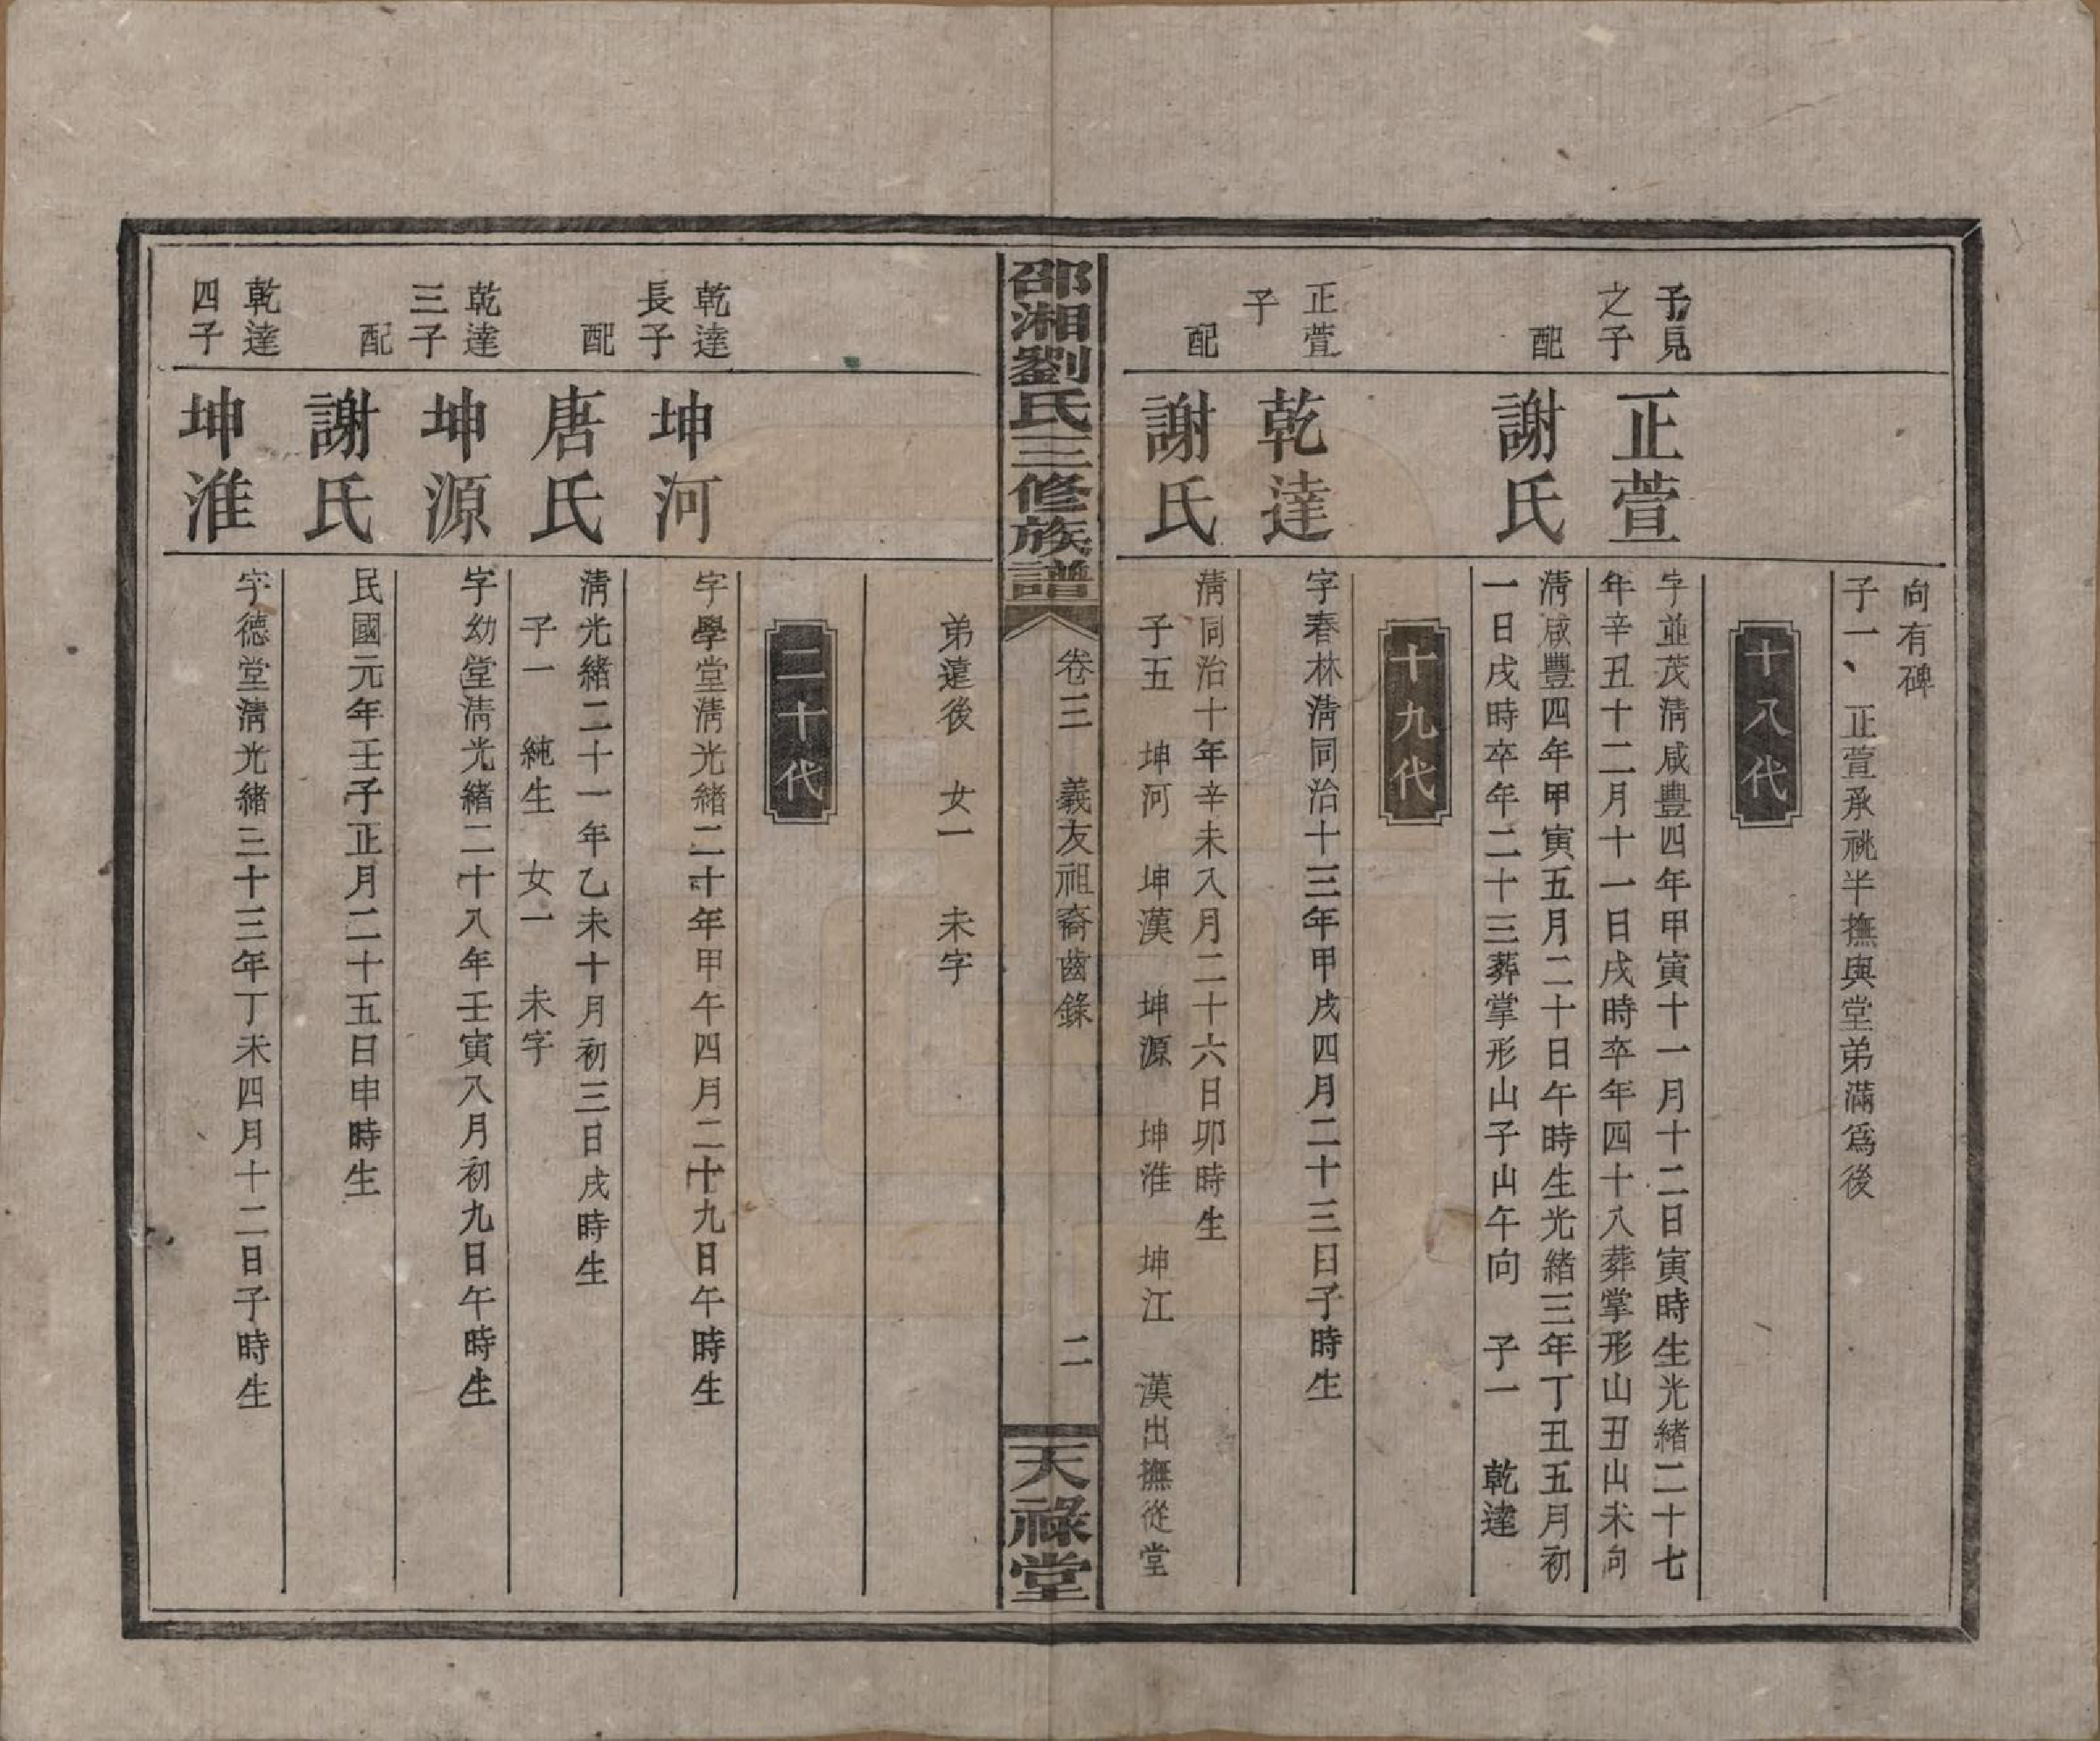 向有碑
子一、正萱承祧半撫與堂弟滿爲後
十八代
予見之子
正萱
字並茂淸咸豐四年甲寅十一月十二日寅時生光緒二十七
年辛丑十二月十一日戌時卒年四十八葬掌形山丑山未向
配
謝氏
淸咸豐四年甲寅五月二十日午時生光緒三年丁丑五月初
一日戌時卒年二十三葬掌形山子山午向 子一 乾達
十九代
正萱子
乾達
字春林淸同治十三年甲戌四月二十三日子時生
配
謝氏
淸同治十年辛未八月二十六日卯時生
子五 坤河 坤漢 坤源 坤淮 坤江 漢出撫從堂
邵湘劉氏三修族譜
卷三 義友祖裔齒錄
二
天祿堂
弟遠後 女一 未字
二十代
乾達長子
坤河
字學堂淸光緒二十年甲午四月二十九日午時生
配
唐氏
淸光緒二十一年乙未十月初三日戌時生
子一 純生 女一 未字
乾達三子
坤源
字幼堂淸光緒二十八年壬寅八月初九日午時生
配
謝氏
民國元年壬子正月二十五日申時生
乾達四子
坤淮
字德堂淸光緒三十三年丁未四月十二日子時生